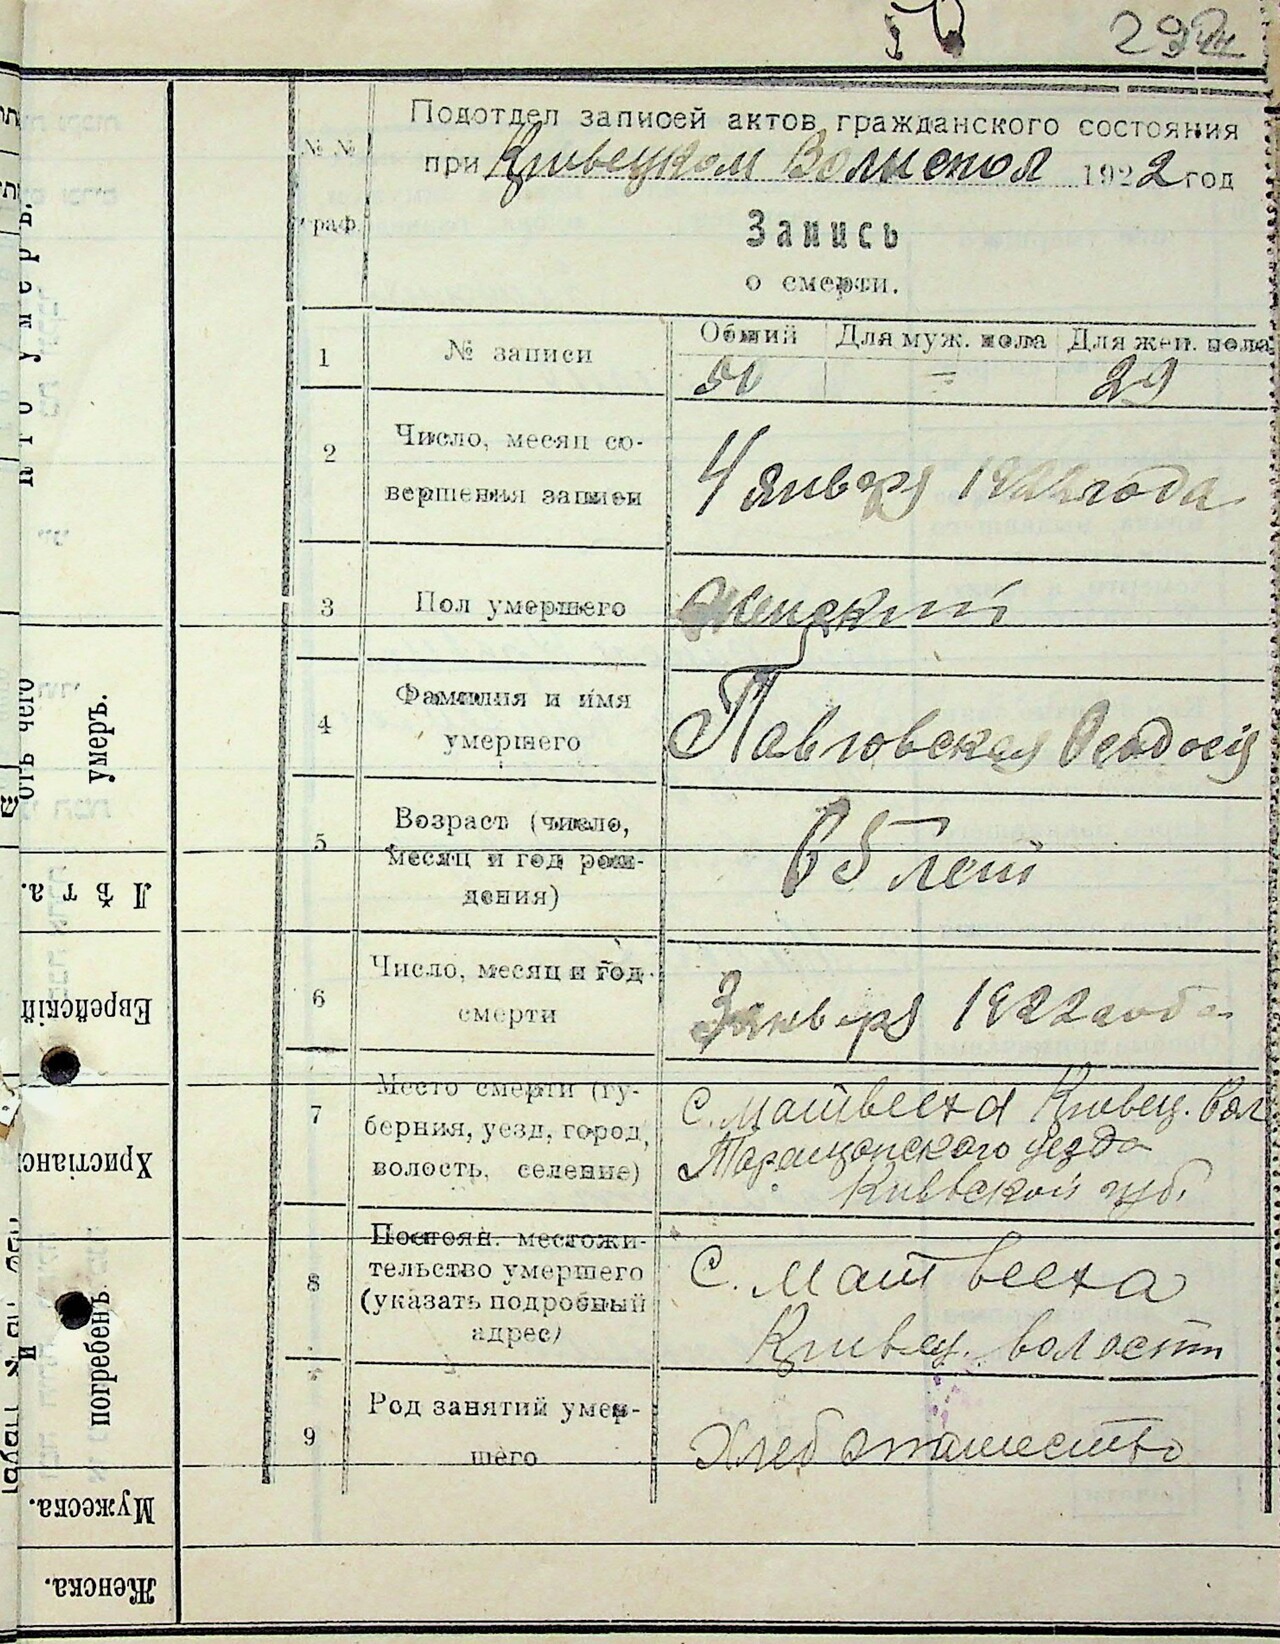 50
29
Подотдел записей актов гражданского состояния
при Кривецком Волисполк 1922 год
№ №
граф.
Запись
о смерти.
1
№ записи
Общий Для муж. пола Для жен. пола
50 = 29
2
Число, месяц со-
вершения записи
4 января 1922 года
3
Пол умершего
Женский
4
Фамилия и имя
умершего
Павловская Феодосия
5
Возраст (число,
месяц и год рож-
дения)
65 лет
6
Число, месяц и год
смерти
3 января 1922 года
7
Место смерти (гу-
берния, уезд, город,
волость, селение)
С. Матвееха Кривец. вол
Таращанского уезда
Киевской губ.
8
Постоян. местожи-
тельство умершего
(указать подробный
адрес)
С. Матвееха
Кривец. волости
9
Род занятий умер-
шего
Хлебопашество
Кто умеръ.
отъ чего
умеръ.
Лѣта.
Еврейскій
Христіанс
и
погребенъ
Мужеска.
Женска.